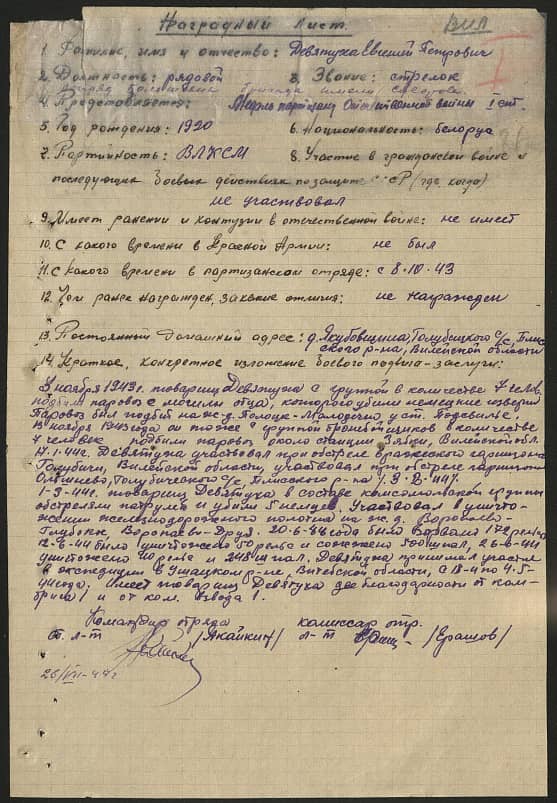 Наградный Лист.
ВИЛ
1. Фамилие, имя и отчество: Девятуха Евгений Петрович
2. Должность: рядовой 3. Звание: стрелок
отряд бригада имени
4. Представляется: Медаль партизану Отечественной войны I ст.
5. Год рождения: 1920 6. Национальность: белорус
7. Партийность: ВЛКСМ 8. Участие в гражданской войне и
последующих боевых действиях по защите СССР (где, когда)
не участвовал
9. Имеет ранении и контузии в отечественной войне: не имеет
10. С какого времени в Красной Армии: не был
11. С какого времени в партизанском отряде: с 8-10-43
12. Чем ранее награжден, за какие отличия: не награжден
13. Постоянный домашний адрес: д. Якубовщина, Голубицкого с/с, Плис
ского р-на, Вилейской области
14. Краткое, конкретное изложение боевого подвига-заслуги:
В ноября 1943 г. товарищ Девятуха с группой в количестве 7 челов.
подбили паровоз с могилы отца, которого убили немецкие изверги
Паровоз был подбит на ж-д. Полоцк-Молодечно у ст. Подсвилье.
ноября 1943 года он тоже с группой бронебойщиков в количестве
7 человек подбили паровоз около станции Зябки, Вилейской обл.
1-44г. Девятуха участвовал при обстреле вражеского гарнизона
Голубичи, Вилейской области, участвовал при обстреле гарнизона
Голубического с/с, Плисского р-на
1-3-44г. товарищ Девятуха в составе комсомольской группы
обстреляли патруля и убили 5 немцев. Участвовал в уничто-
жении железнодорожного полотна на ж. д. Воропаево-
Глубокое, Воропаево-Друя. 20-6-44 года было взорвано
12-6-44 было уничтожено рельс и сожжено шпал, 26-6-44
уничтожено 40 рельс и 248 шпал. Девятуха принимал участие
в экспедиции в Ушацком р-не, Витебской области, с 18-4 по 4-5-
44 года. Имеет товарищ Девятуха две благодарности от ком-
брига 1 и от ком. взвода 1.
Командир отряда комиссар отр.
ст. л-т /Якайкин/ л-т /Ерашов/
26/VII-44г